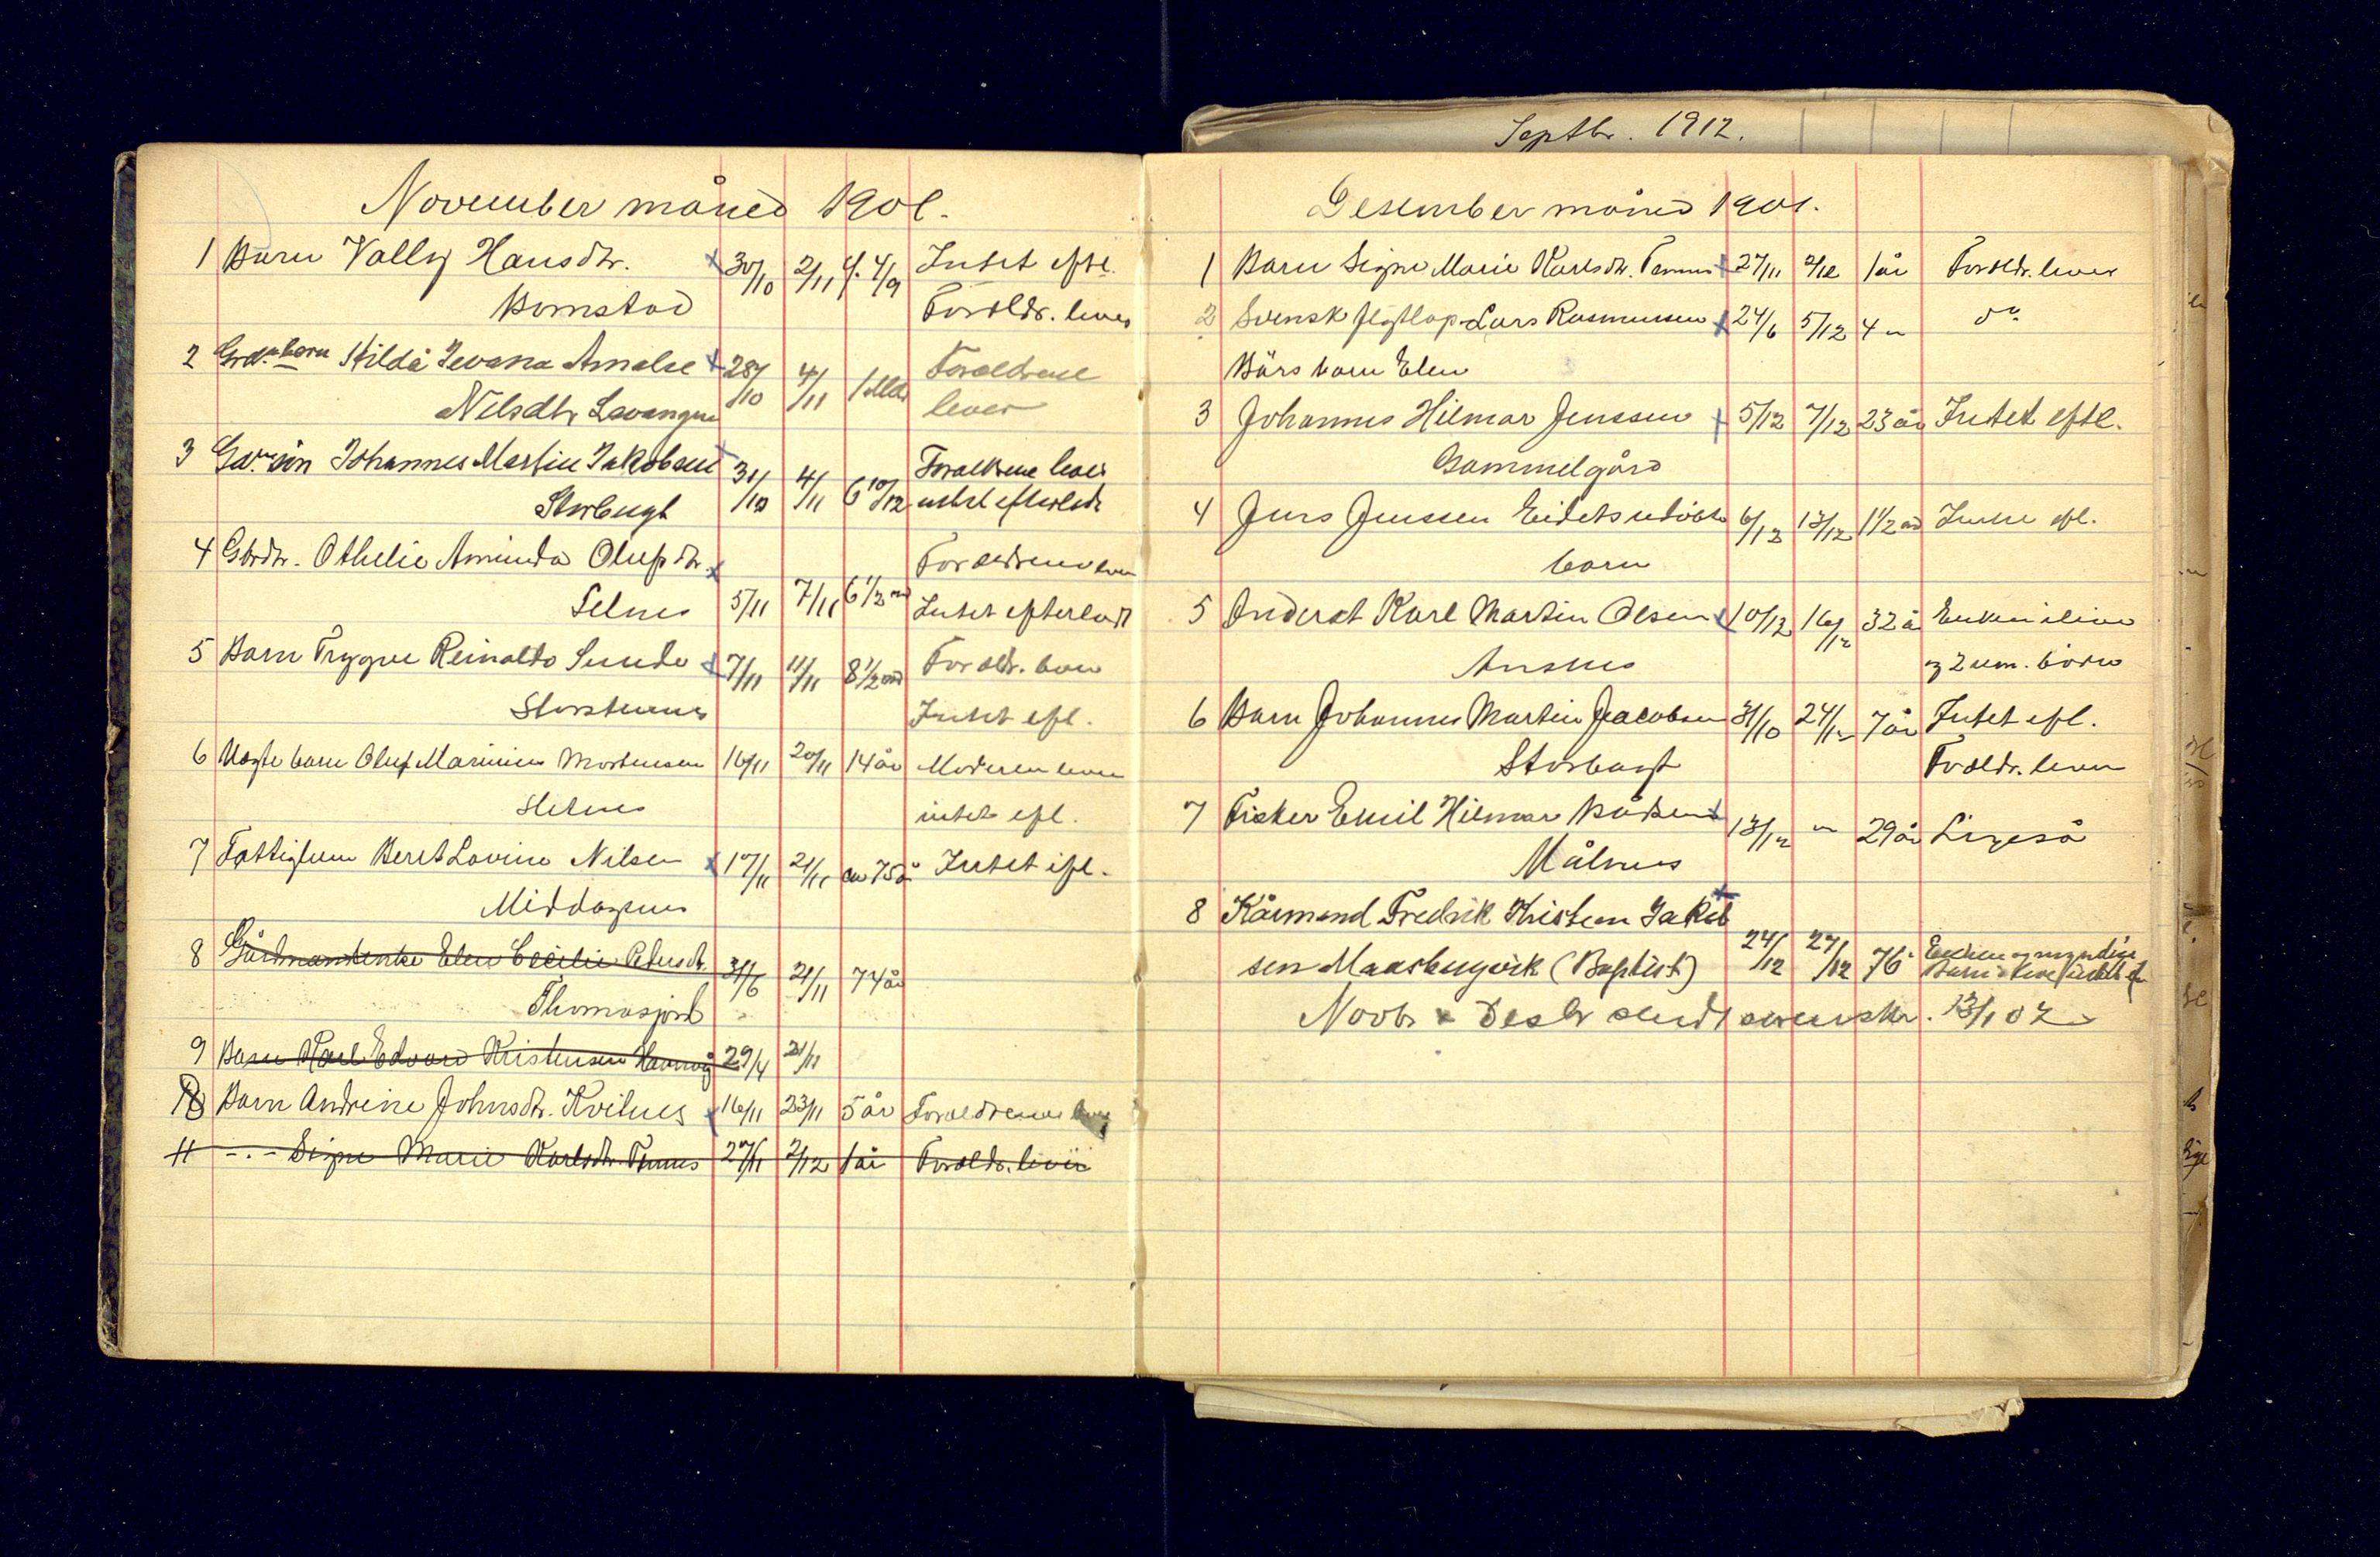 November måned 1901.
1 Barn Vally Hansdtr. 30/10 2/11 f. 4/9 Intet eftl.
Bomstad Foreldr. lever
2 Grdm barn Hilda Jevana Amalie 28/10 4/11 1 Md Foreldrene
Nilsdtr Lavangen lever
3 Gdm søn Johannes Martin Jakobsen 31/10 4/11 6 10/12 Forældrene lever
Storbugt intet efterladt
4 Gbrdtr. Othelie Aminda Olufsdtr. Forældrene lever
Selnes 5/11 7/11 6 1/2 md Intet efterladt
5 Barn Trygve Reinaldo Sunde 7/11 11/11 8 1/2 md Foreldr. lever
Storsteinnes Intet efl.
6 Barn Oluf Marinius Mortensen 16/11 20/11 14 år Moderen lever
Sletnes intet efl.
7 Fattiglem Beret Lovise Nilsen 17/11 21/11 ca 75 å Intet efl.
Middagsnes
8 Gårdmandenke Elen Cecilie Pedersdt. 31/6 21/11 74 år
Thomasjord
9 Barn Karl Edvard Kristensen 29/4 21/11
10 8 Barn Andrine Johnsdtr. Kvitnes 16/11 23/11 5 år Foreldrene lever
11 -.- Signe Marie Karlsdtr. Tennes 27/11 2/12 1 år Foreldr. lever
Septbr. 1912.
Desember måned 1901.
1 Barn Signe Marie Karlsdtr. Tennes 27/11 2/12 1 år Foreldr. lever
2 Svensk flytlap Lars Rasmussen 24/6 5/12 4 " do
Bärs barn Elen
3 Johannes Hilmar Jenssen 5/12 7/12 23 år Intet eftl.
Gammelgård
4 Jens Jenssen Eidets udöbte 6/12 13/12 1 1/2 md Intet efl.
barn
5 Inderst Karl Martin Olsen 10/12 16/12 32 å Enken i live
Ansnes og 2 um. börn
6 Barn Johannes Martin Jacobsen 31/10 24/12 7 år Intet efl.
Storbugt Foreldr. lever
7 Fisker Emil Hilmar Bådsen 13/12 " 29 år Ligeså
Målsnes
8 Kårmand Fredrik Kristian Jakob
sen Maarsbugvik (Baptist) 24/12 27/12 76 Enken og myndige
Barn i live
Novbr & Desbr sendt sorenskr. 13/1 02